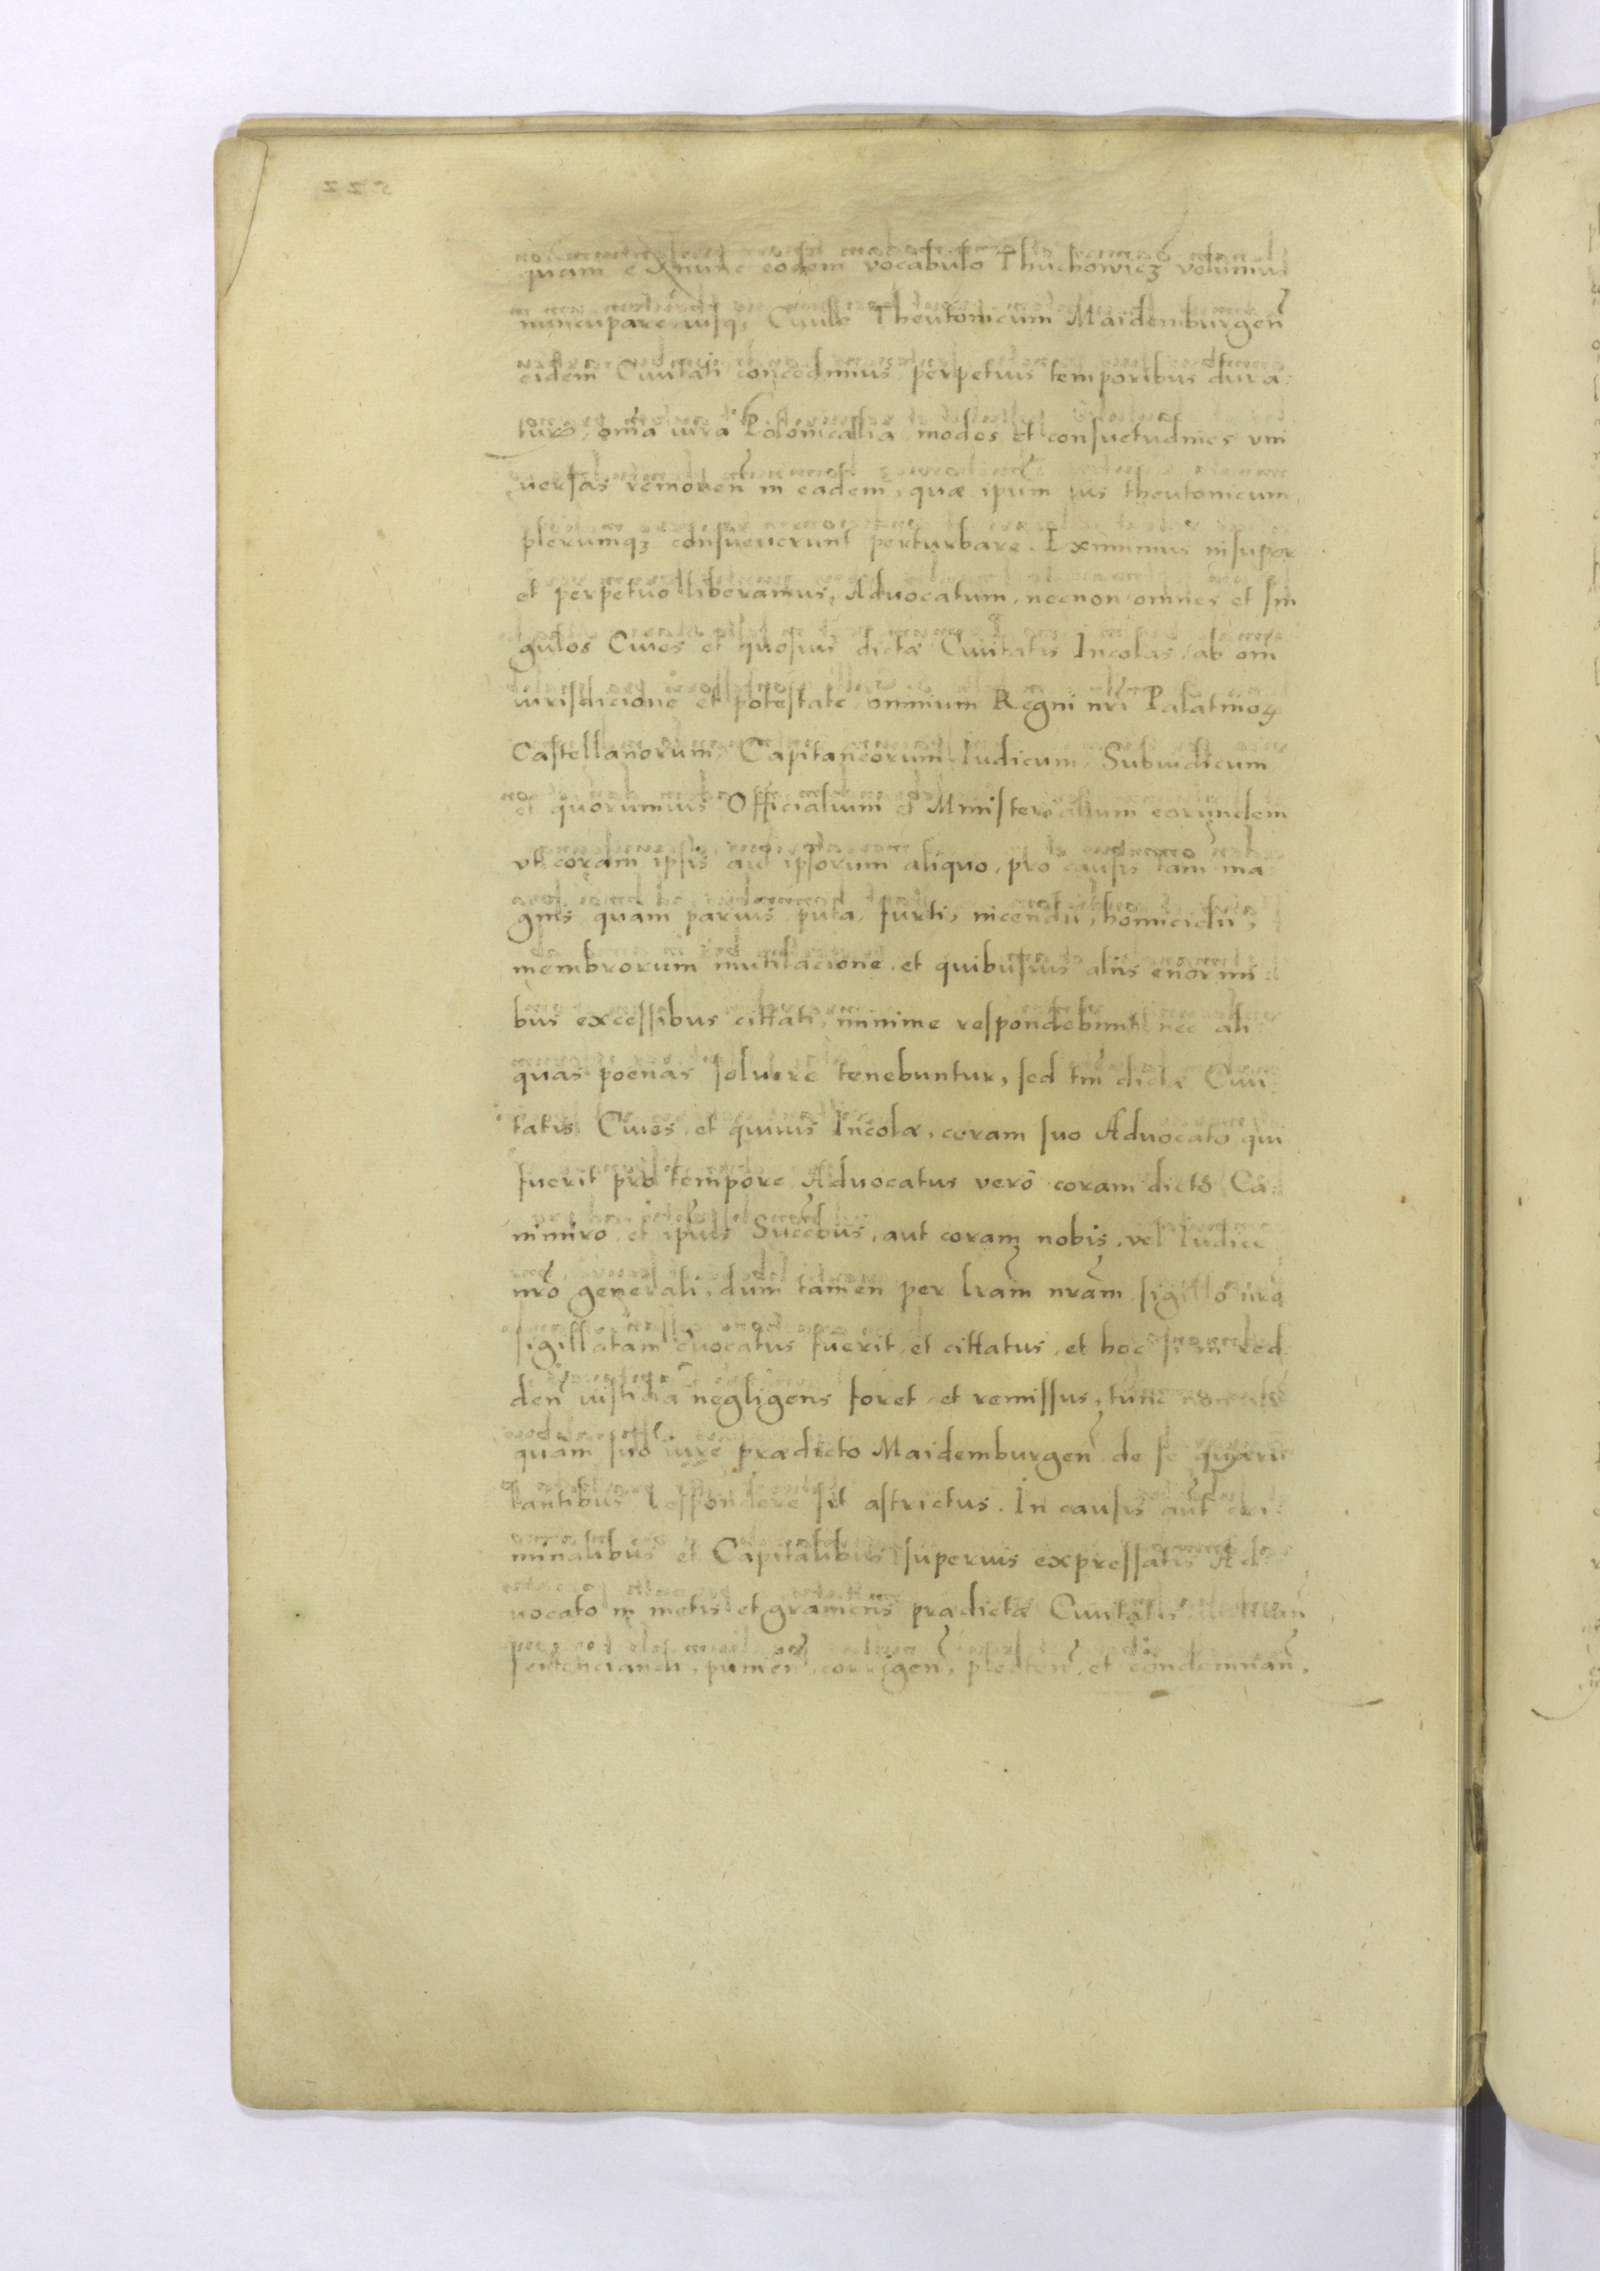 quam ex nunc eodem vocabulo Thuchowicz volumus
nuncupare, iusq; Ciuile Theutonicum Maidemburgen̄
eidem Ciuitati concedimus perpetuis temporibus dura-
turū, om̄ia iura Polonicallia modos et consuetudines vni
uersas remouen̄ in eadem, quæ ip̄um ius theutonicum
plerumqꝫ consueuerunt perturbare. Eximimus insuper
et perpetuo liberamus, Advocatum, necnon omnes et sin
gulos Ciues et quosuis dictæ Ciuitatis Incolas, ab om̄i
iurisdicione et potestate omnium Regni nr̄i Palatinoꝝ
Castellanorum, Capitaneorum Iudicum, Subiudicum
et quorumuis Officialium et Ministerialium eorundem
vt coram ipsis aut ipsorum aliquo, pro causis tam ma
gnis quam paruis, puta furti, incendii, homicidii,
membrorum mutilacione, et quibusuis aliis enormi-
bus excessibus cittati, minime respondebunt, nec ali-
quas poenas soluere tenebuntur, sed tm̄ dictæ Ciui-
tatis Ciues, et quiuis Incolæ, coram suo Aduocato qui
fuerit pro tempore Aduocatus verò coram dictō Ca-
nimiro et ip̄ius Succ̄bus, aut coram nobis, vel Iudice
nr̄o generali, dum tamen per lr̄am nr̄am sigillo nr̄o
sigillatam euocatus fuerit, et cittatus, et hoc si in red-
den̄ iusticia negligens foret et remissus, tunc non aliter
quam suo iure prædicto Maidemburgen̄ de se quæru
lantibus respondere sit astrictus. In causis aut̄ cri-
minalibus et Capitalibus superius expressatis Ad-
uocato in metis et gramciis prædictæ Ciuitatis
sentenciandi, punien̄, corrigen̄, plecten̄, et condemnan̄,